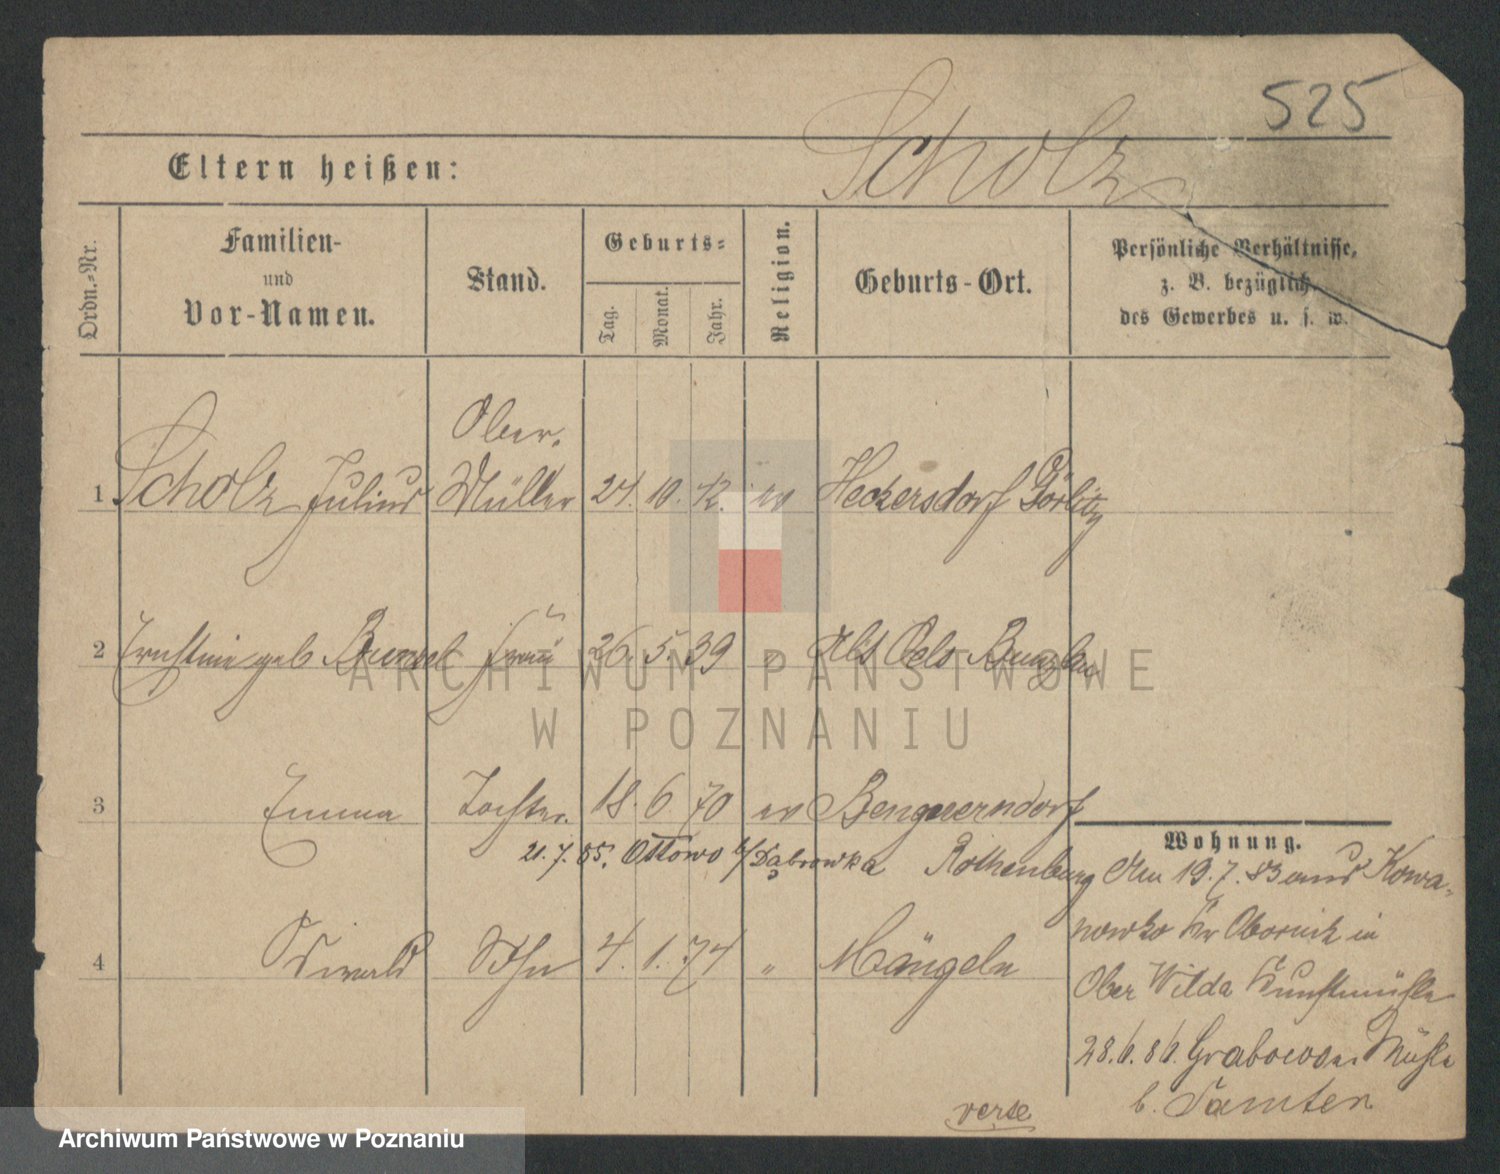 525
Scholz
Eltern heißen:
Ordn.-Nr.
Familien-
und
Vor-Namen.
Stand.
Geburts-
Tag.
Monat.
Jahr.
Religion.
Geburts-Ort.
Persönliche Verhältnisse,
z. B. bezüglich
des Gewerbes u. s. w.
Ober.
1 Scholz Julius Müller 24. 10. 42. ev Heckersdorf Görlitz
2 Ernstine geb Frau 26. 5. 39 " Alt Oels Bunzlau
ARCHIWUM PAŃSTWOWE
W POZNANIU
3 Emma Tochter. 18. 6. 70 ev
Wohnung.
21. 7. 85. b/Dąbrowka Rothenburg
Am 19. 7. 83 aus Kowa-
nowko Kr Obornik in
4 Sohn 4. 1. 74 "
Ober Wilda Kunstmühle
28.6.86. Mühle
b. Samter
verte
Archiwum Państwowe w Poznaniu